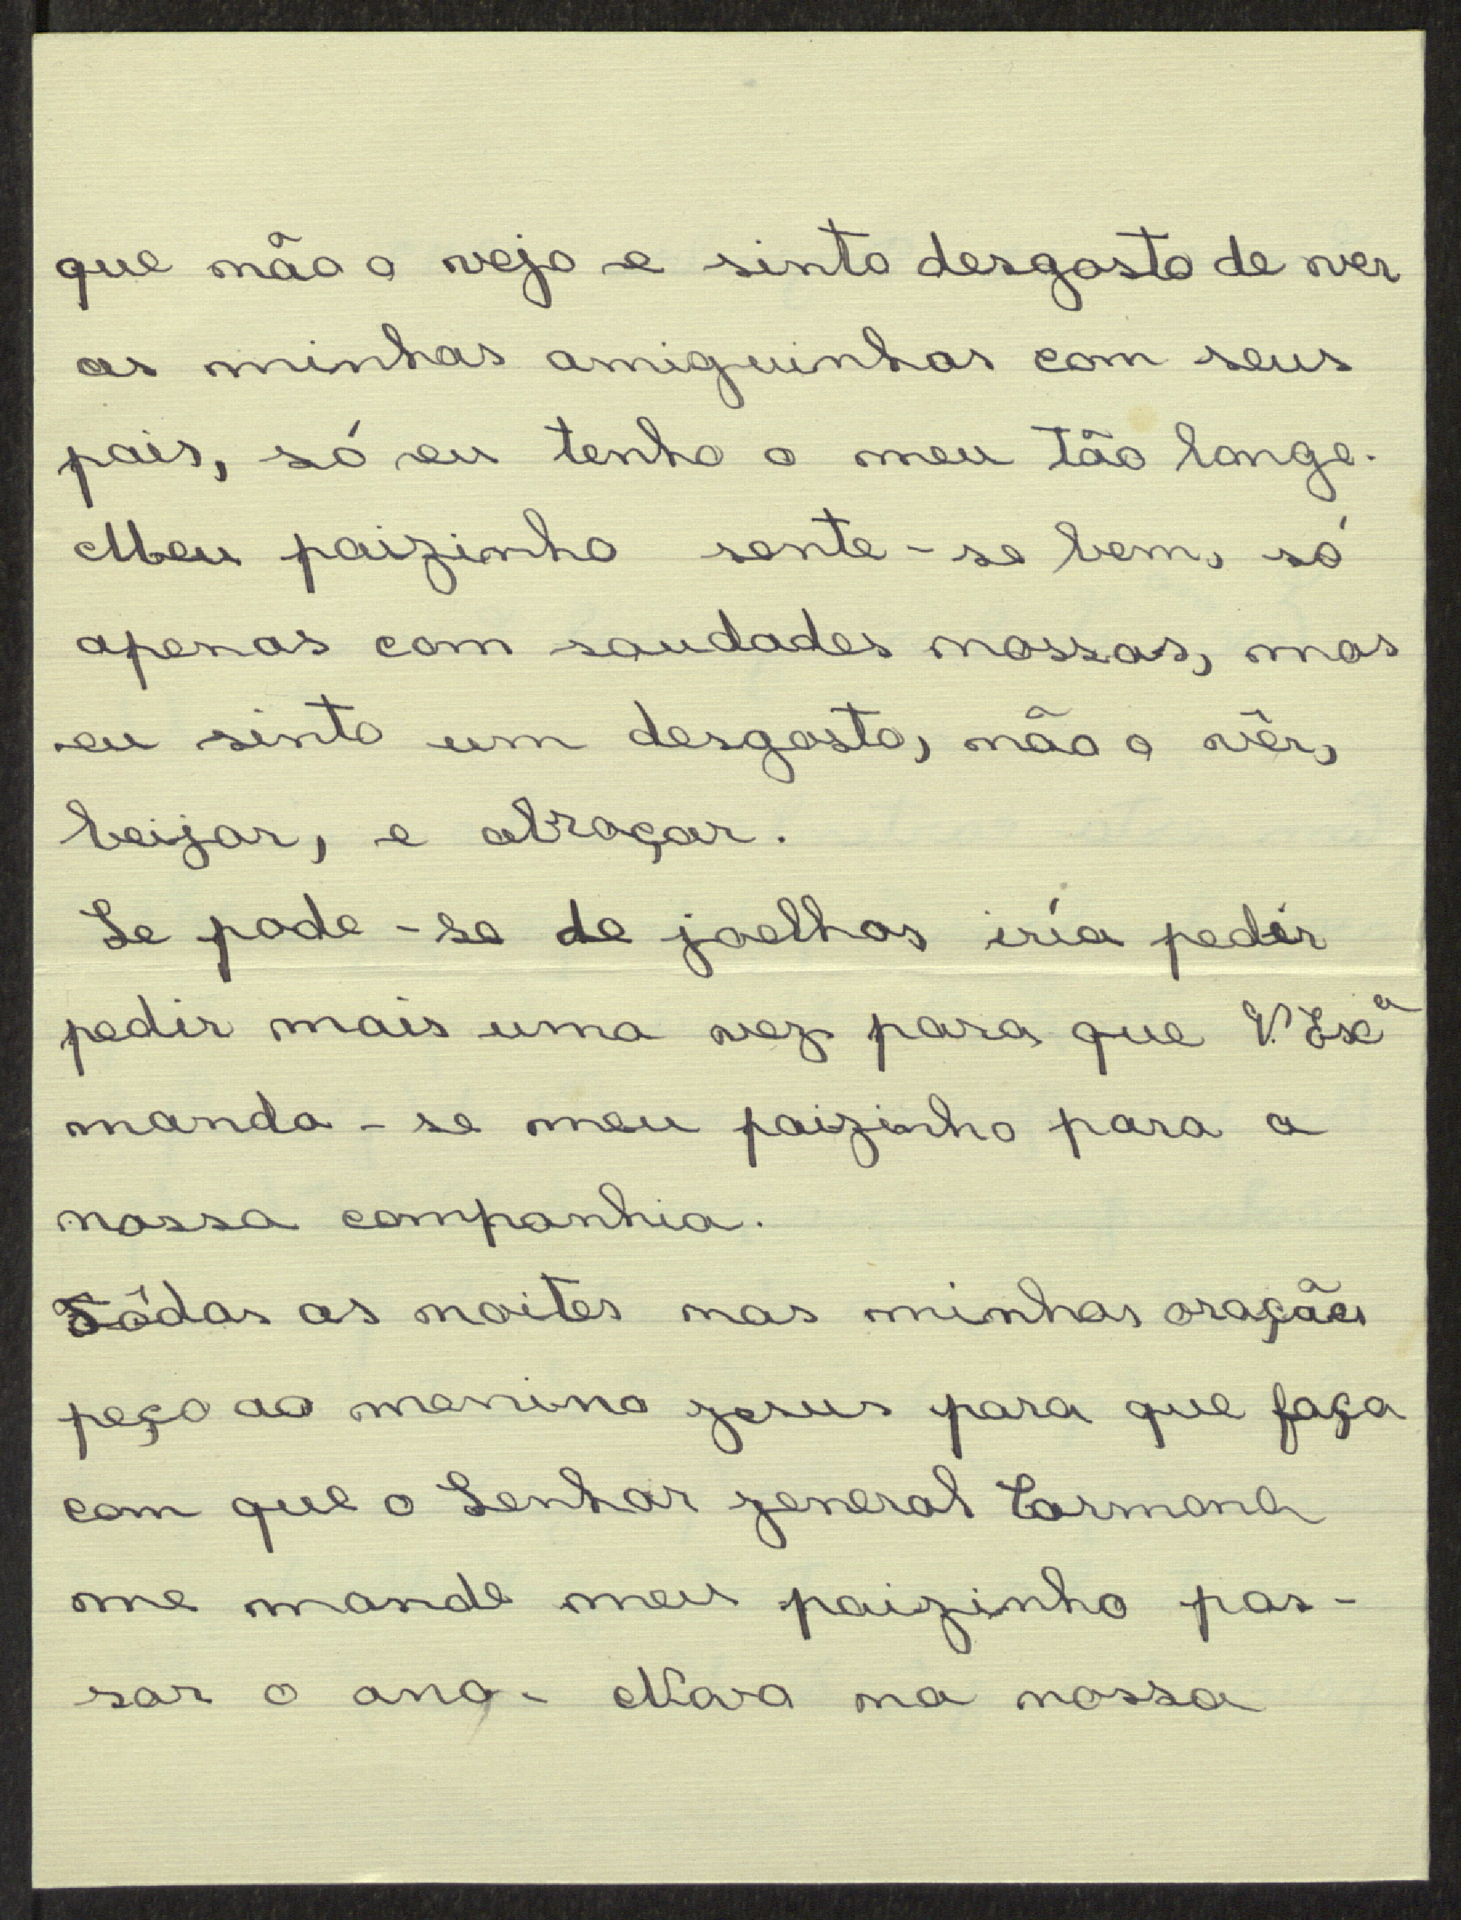 que não o vejo e sinto desgosto de ver
as minhas amiguinhas com seus
pais, só eu tenho o meu tão longe.
Meu paizinho sente-se bem, só
apenas com saudades nossas, mas
eu sinto um desgosto, não o vêr,
beijar, e abraçar.
Se pode-se de joelhos iría pedir
pedir mais uma vez para que V. Exª
manda-se meu paizinho para a
nossa companhia.
Tôdas as noites nas minhas orações
peço ao menino jesus para que faça
com que o Senhor general Carmona
me mande meu paizinho pas-
sar o ano-Novo na nossa